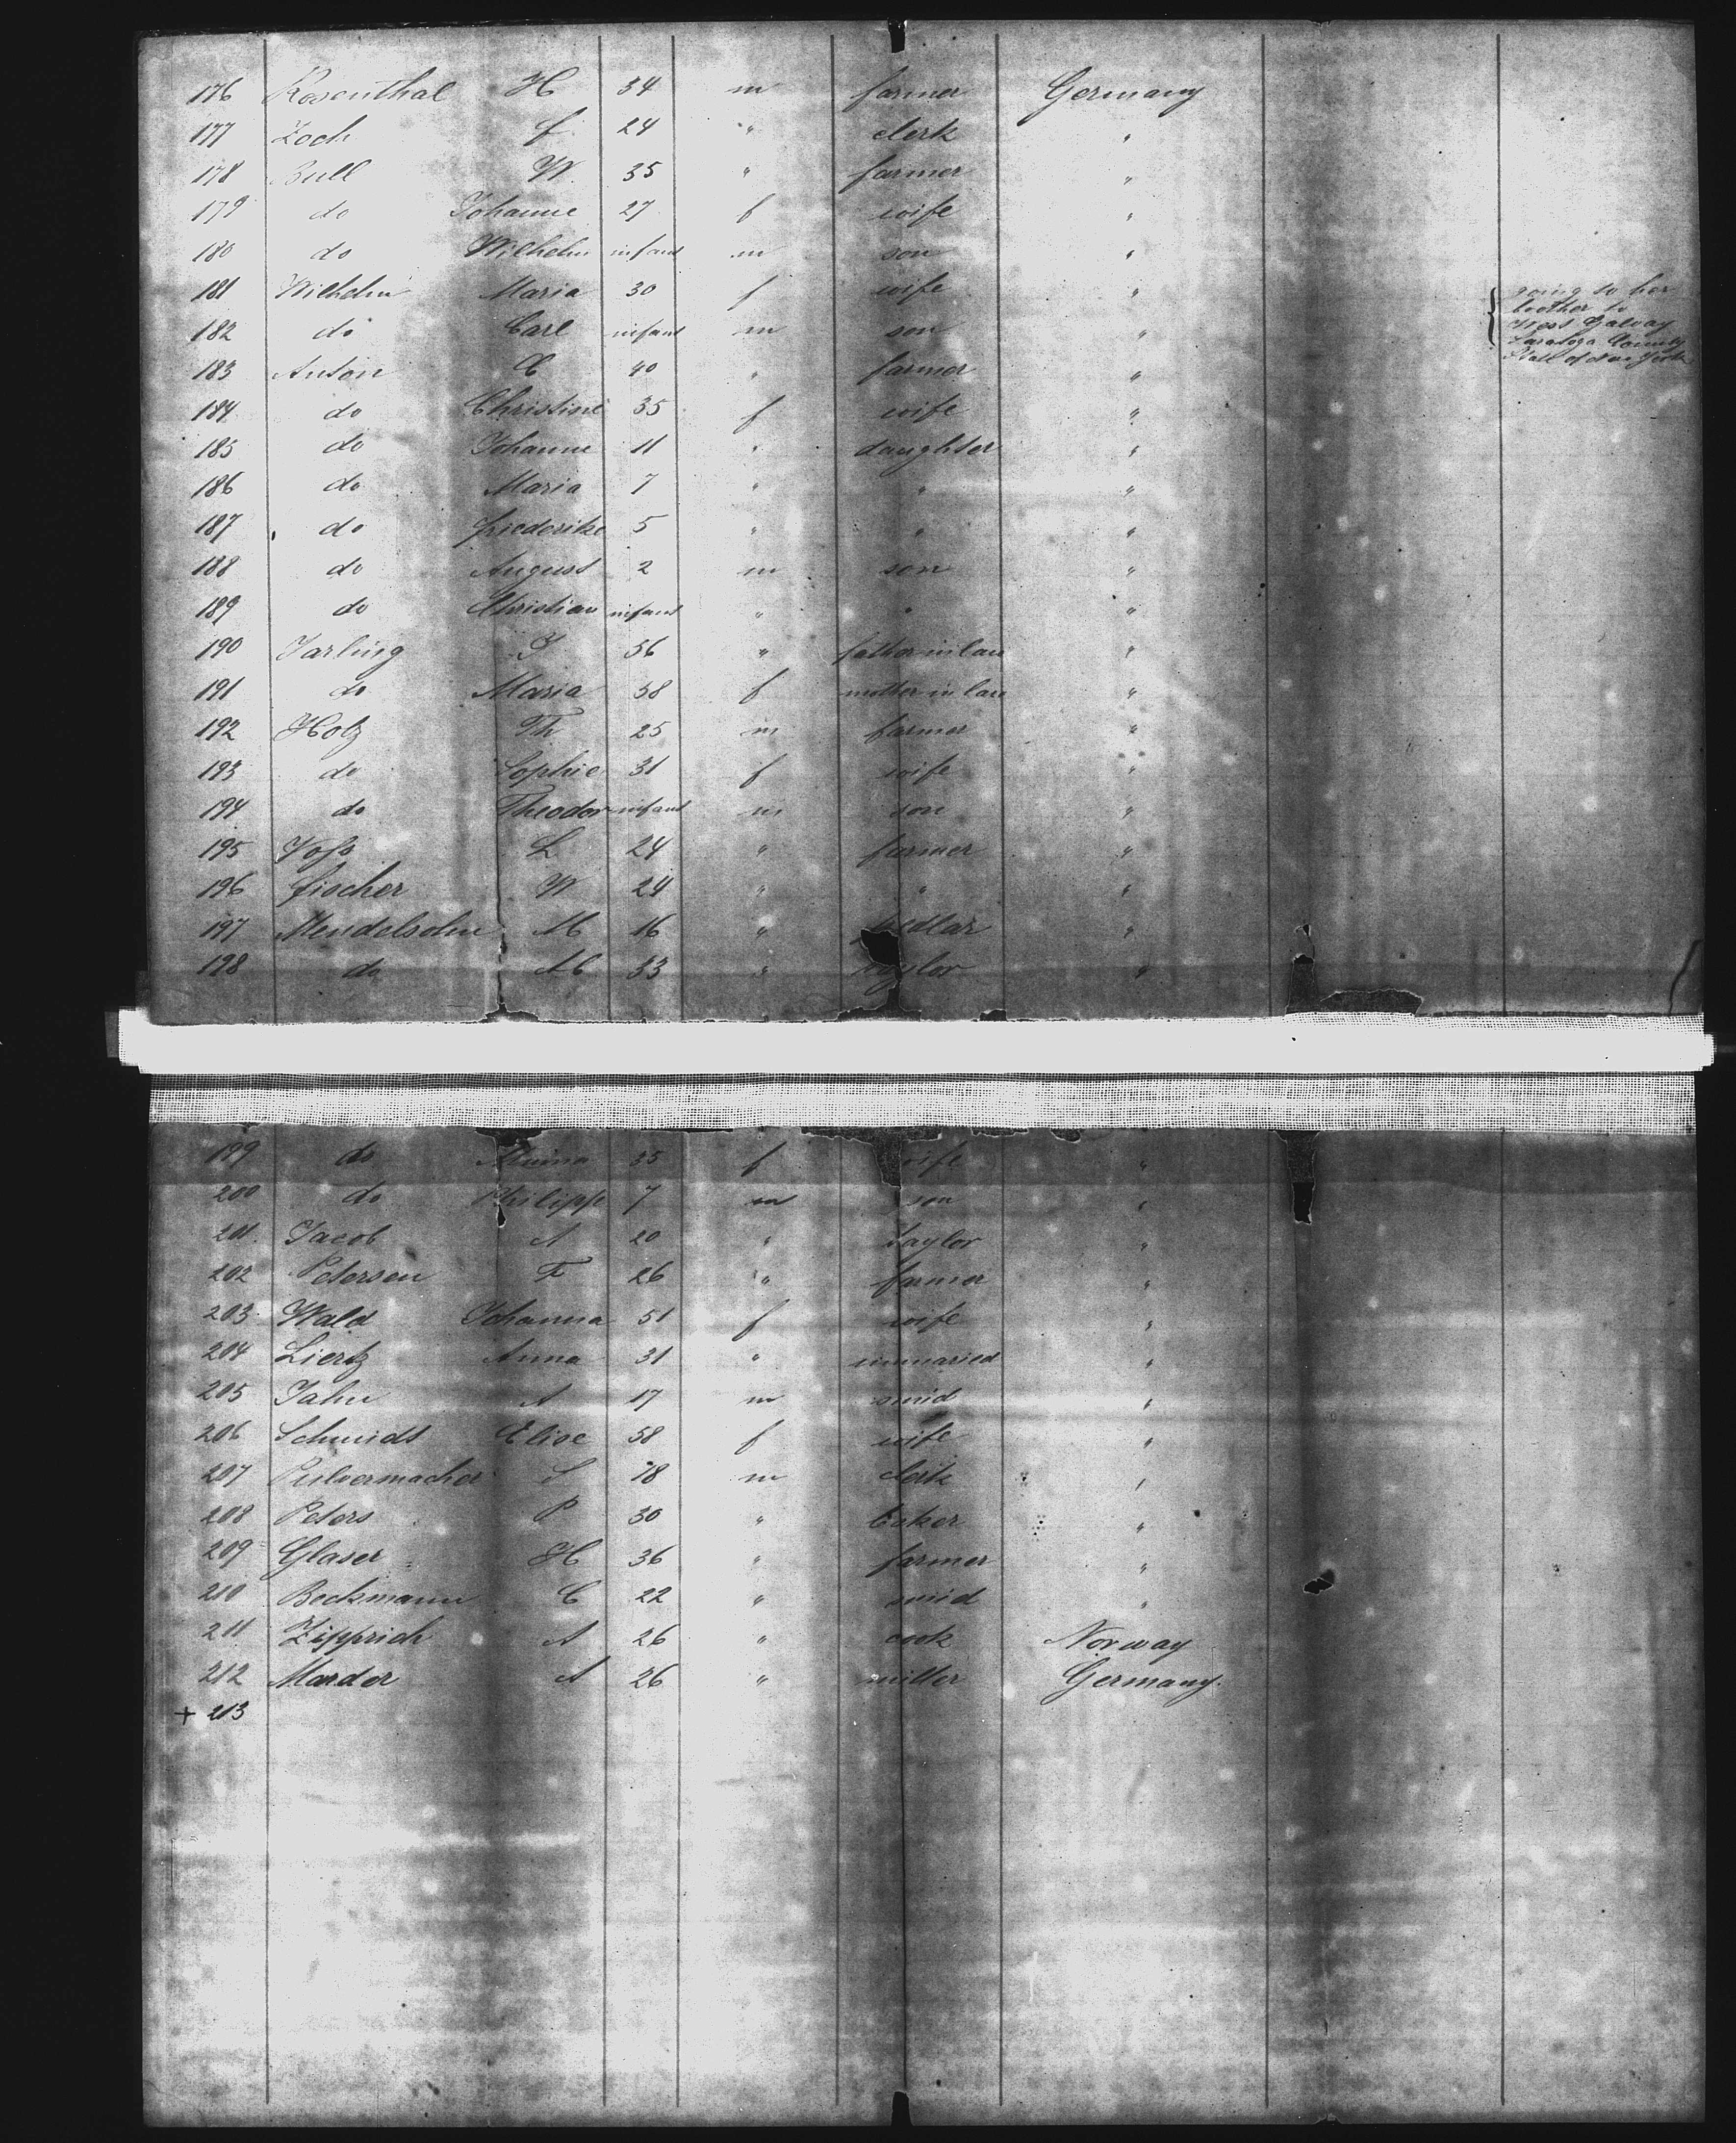 176 Rosenthal H 34 m farmer Germany
177 Zoch f 24 " clerk "
178 Bull W. 35 " farmer "
179 do Johanne 27 f wife "
180 do Wilhelm infant m son "
181 Wilhelm Maria 30 f wife " going to her
brother in
West Galway
Saratoga County
State of New York
182 do Carl infant m son "
183 Anton C 40 " farmer "
184 do Christine 35 f wife "
185 do Johanne 11 " daughter "
186 do Maria 7 " " "
187 do friederike 5 " " "
188 do August 2 m son "
189 do Christian infant " " "
190 Jarling J 56 " father in law "
191 do Maria 58 f mother in law "
192 Holz Th 25 m farmer "
193 do Sophie 31 f wife "
194 do Theodor infant m son "
195 Voß L 24 " farmer "
196 fischer W 24 " " "
197 Mendelsohn M 16 " pedlar "
198 do M 33 " taylor "
199 do 35 f wife "
200 do Philipp 7 m son "
201. Jacob A 20 " taylor "
202 Petersen F 26 " farmer "
203. Wald Johanna 51 f wife "
204 Liertz Anna 31 " unmaried "
205 Jahn A 17 m smid "
206 Schmidt Elise 58 f wife "
207 Pulvermacher S 18 m clerk "
208 Peters P 30 " beker "
209 Glaser H 36 " farmer "
210 Beckmann C 22 " smid "
211 Zipprich A 26 " cook Norway
212 Marder A 26 " miller Germany.
+ 213